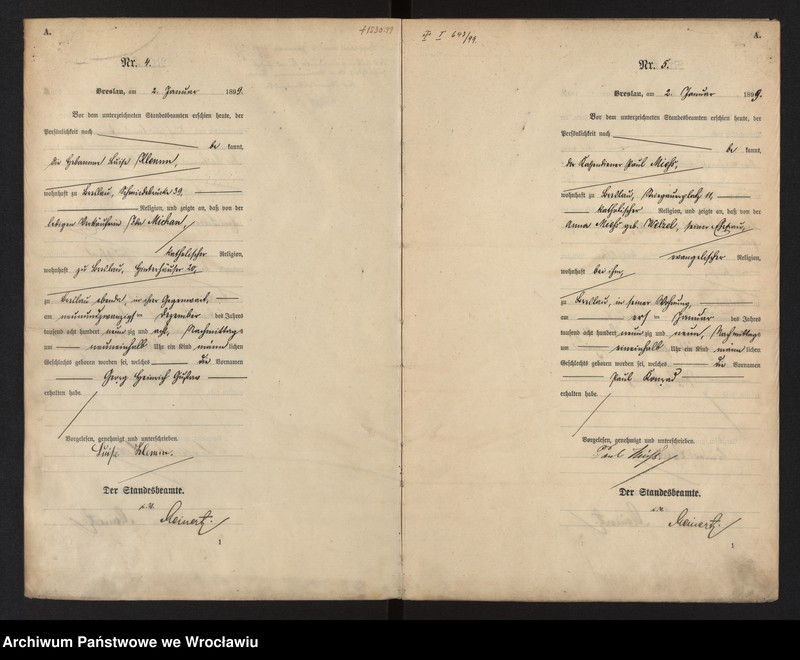 A.
Nr. 4.
Breslau, am 2. Januar 1899.
Vor dem unterzeichneten Standesbeamten erschien heute, der
Persönlichkeit nach
be kannt,
die Hebamme Luise Klemm,
wohnhaft zu Breslau, Schmiedebrücke 39,
Religion, und zeigte an, daß von der
ledigen Verkäuferin Ida Michan,
katholischer Religion,
wohnhaft zu Breslau, Hinterhäuser 20,
zu Breslau ebenda, in ihrer Gegenwart,
am neunundzwanzigsten Dezember des Jahres
tausend acht hundert neunzig und acht, Nachmittags
um neuneinhalb Uhr ein Kind männlichen
Geschlechts geboren worden sei, welches die Vornamen
Georg Heinrich Gustav
erhalten habe.
Vorgelesen, genehmigt und unterschrieben.
Luise Klemm.
Der Standesbeamte.
Meinertz.
1
A.
Nr. 5.
Breslau, am 2. Januar 1899.
Vor dem unterzeichneten Standesbeamten erschien heute, der
Persönlichkeit nach
be kannt,
der Paul
wohnhaft zu Breslau, 11,
katholischer Religion, und zeigte an, daß von der
Anna geb. Welzel, seiner Ehefrau,
evangelischer Religion,
wohnhaft bei ihm,
zu Breslau, in seiner Wohnung,
am ersten Januar des Jahres
tausend acht hundert neunzig und neun, Nachmittags
um eineinhalb Uhr ein Kind männlichen
Geschlechts geboren worden sei, welches die Vornamen
Paul Konrad
erhalten habe.
Vorgelesen, genehmigt und unterschrieben.
Paul
Der Standesbeamte.
Meinertz.
1
Archiwum Państwowe we Wrocławiu